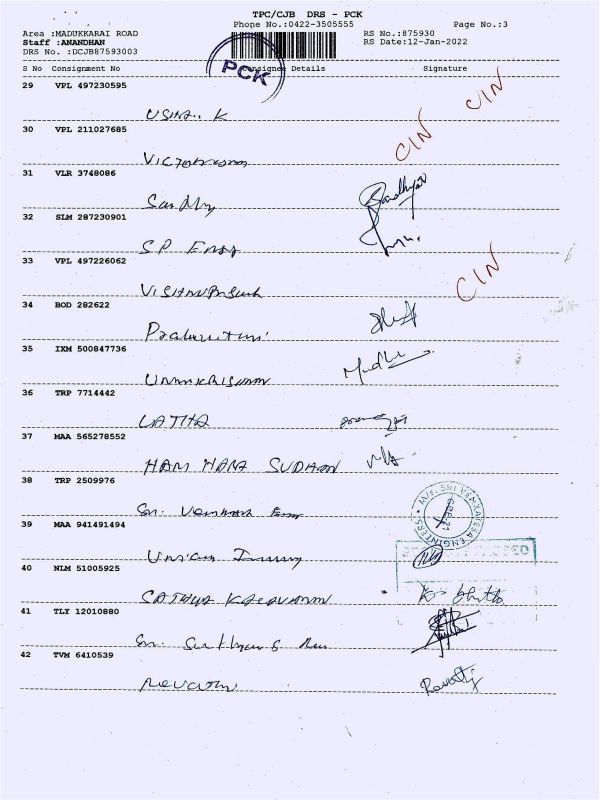 TPC/CJB DRS - PCK
Phone No.:0422-3505555 Page No.:3
Area :MADUKKARAI ROAD RS No.:875930
Staff :ANANDHAN RS Date:12-Jan-2022
DRS No. :DCJB87593003
S No Consignment No Consignee Details Signature
PCK
29 VPL 497230595 CIN
USHA.. K
30 VPL 211027685 CIN
31 VLR 3748086
Sandhy
32 SLM 287230901
SP Engg
33 VPL 497226062 CIN
34 BOD 282622
35 IXM 500847736
Madhu
UNNIKRISHNAN
36 TRP 7714442
LATHA
37 MAA 565278552
HARI HARA SUDHAN
38 TRP 2509976
M/s. SRI VENKATESA ENGINEERS
Sri. Venkatesa Engg
39 MAA 941491494
40 NLM 51005925
SATHYA KALAVATHI
41 TLY 12010880
42 TVM 6410539
Revathi
Revathy